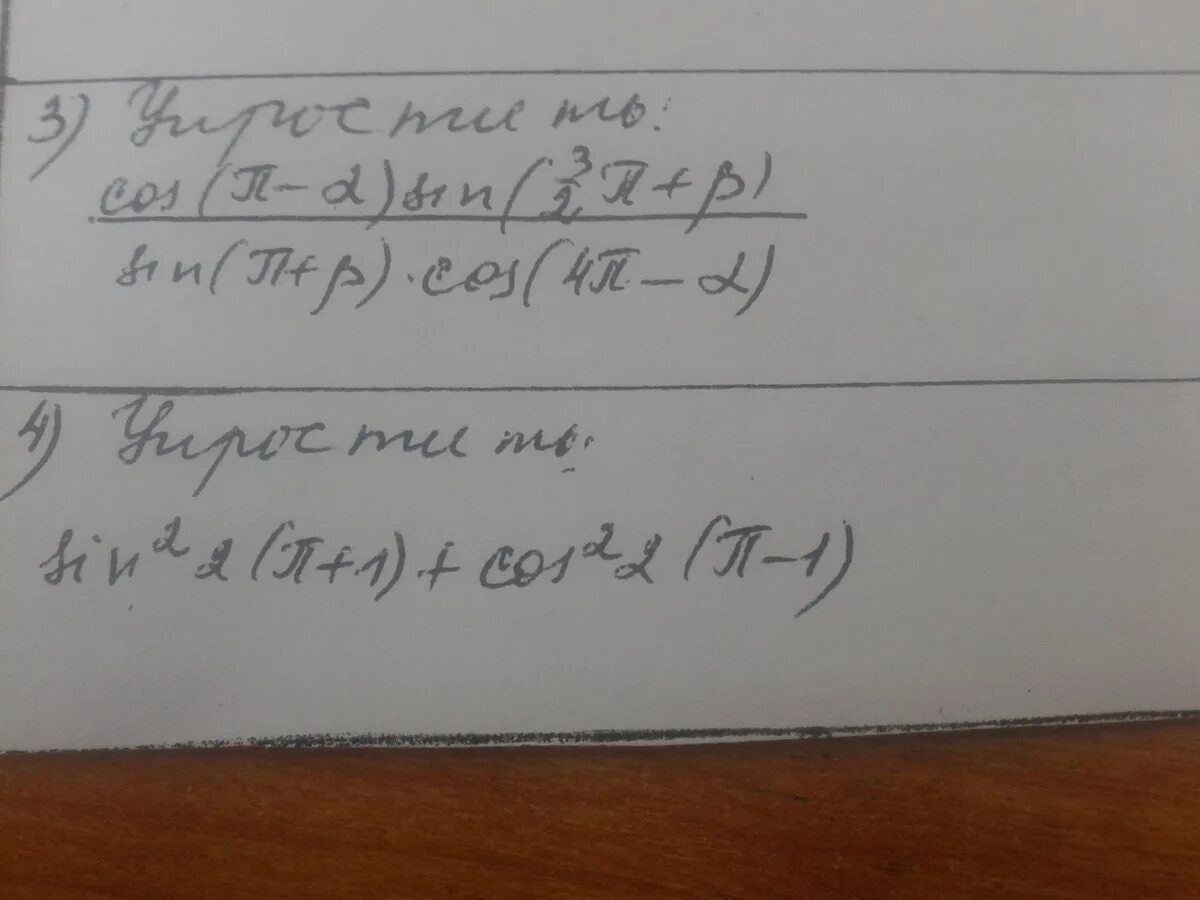 3) Упростить:
cos(π-α)sin(3/2π+β)
sin(π+β)·cos(4π-α)
4) Упростить:
sin²2(π+1)+cos²2(π-1)